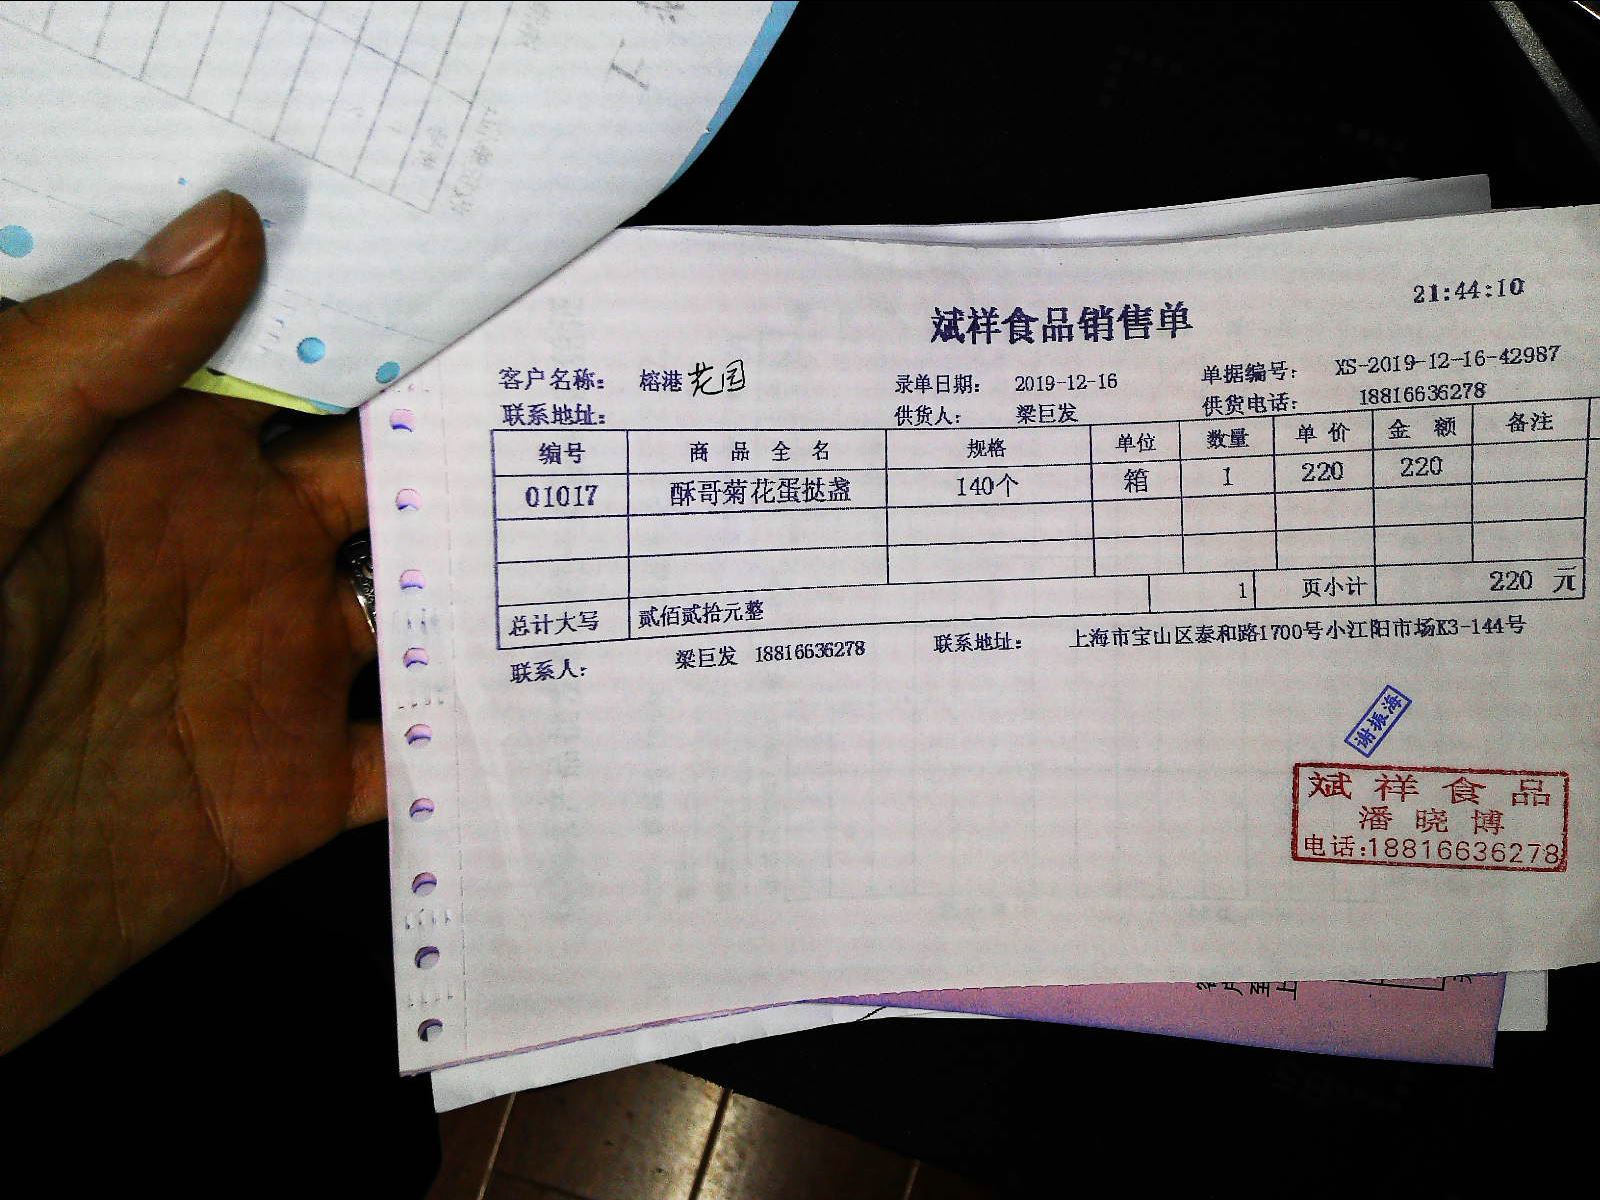 21:44:10
斌祥食品销售单
客户名称： 榕港花园 录单日期： 2019-12-16 单据编号： XS-2019-12-16-42987
联系地址： 供货人： 梁巨发 供货电话： 18816636278
编号 商品全名 规格 单位 数量 单价 金额 备注
01017 酥哥菊花蛋挞盏 140个 箱 1 220 220
总计大写 贰佰贰拾元整 1 页小计 220 元
联系人： 梁巨发 18816636278 联系地址： 上海市宝山区泰和路1700号小江阳市场K3-144号
谢振海
斌祥食品
潘晓博
电话:18816636278